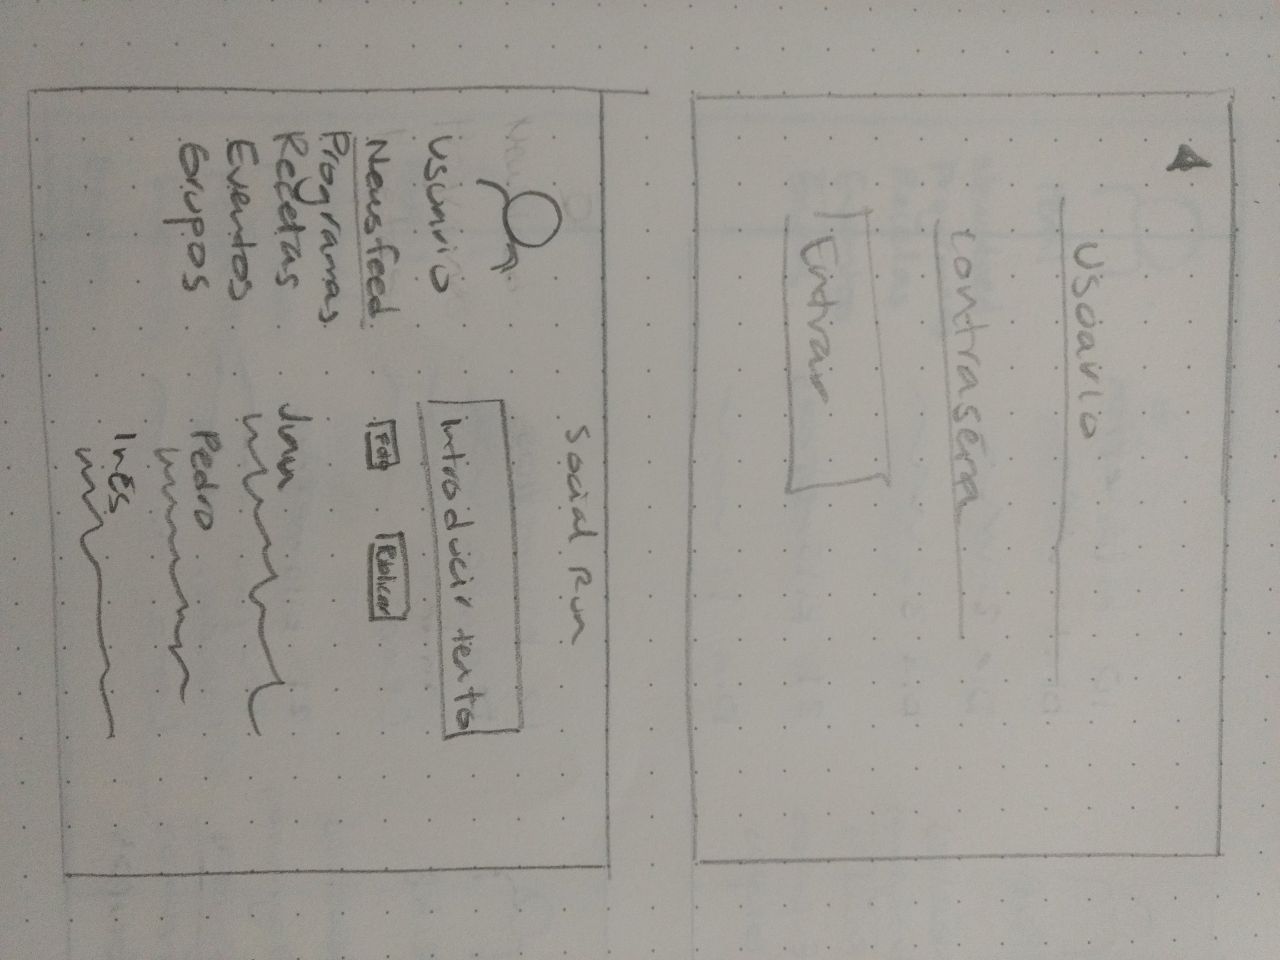 Usuario
Contraseña
Entrar
Social Run
Usuario
Newsfeed
Programas
Recetas
Eventos
Grupos
Introducir texto
Foto
Publicar
Juan
Pedro
Inés